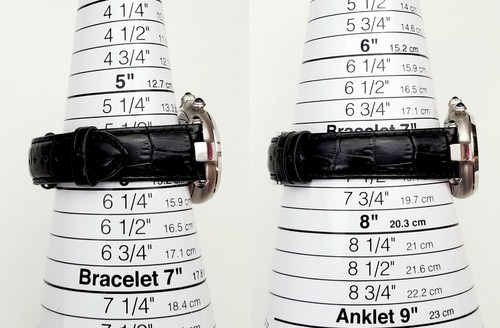 4 1/4"
4 1/2"
4 3/4"
5" 12.7 cm
5 1/4" 13.3
6 1/4" 15.9 c
6 1/2" 16.5 cm
6 3/4" 17.1 cm
Bracelet 7"
7 1/4" 18.4 cm
7 1/2"
5 1/2" 14 cm
5 3/4" 14.6 cm
6" 15.2 cm
6 1/4" 15.9 cm
6 1/2" 16.5 cm
6 3/4" 17.1 cm
Bracelet 7"
7 3/4" 19.7 cm
8" 20.3 cm
8 1/4" 21 cm
8 1/2" 21.6 cm
8 3/4" 22.2 cm
Anklet 9" 23 cm